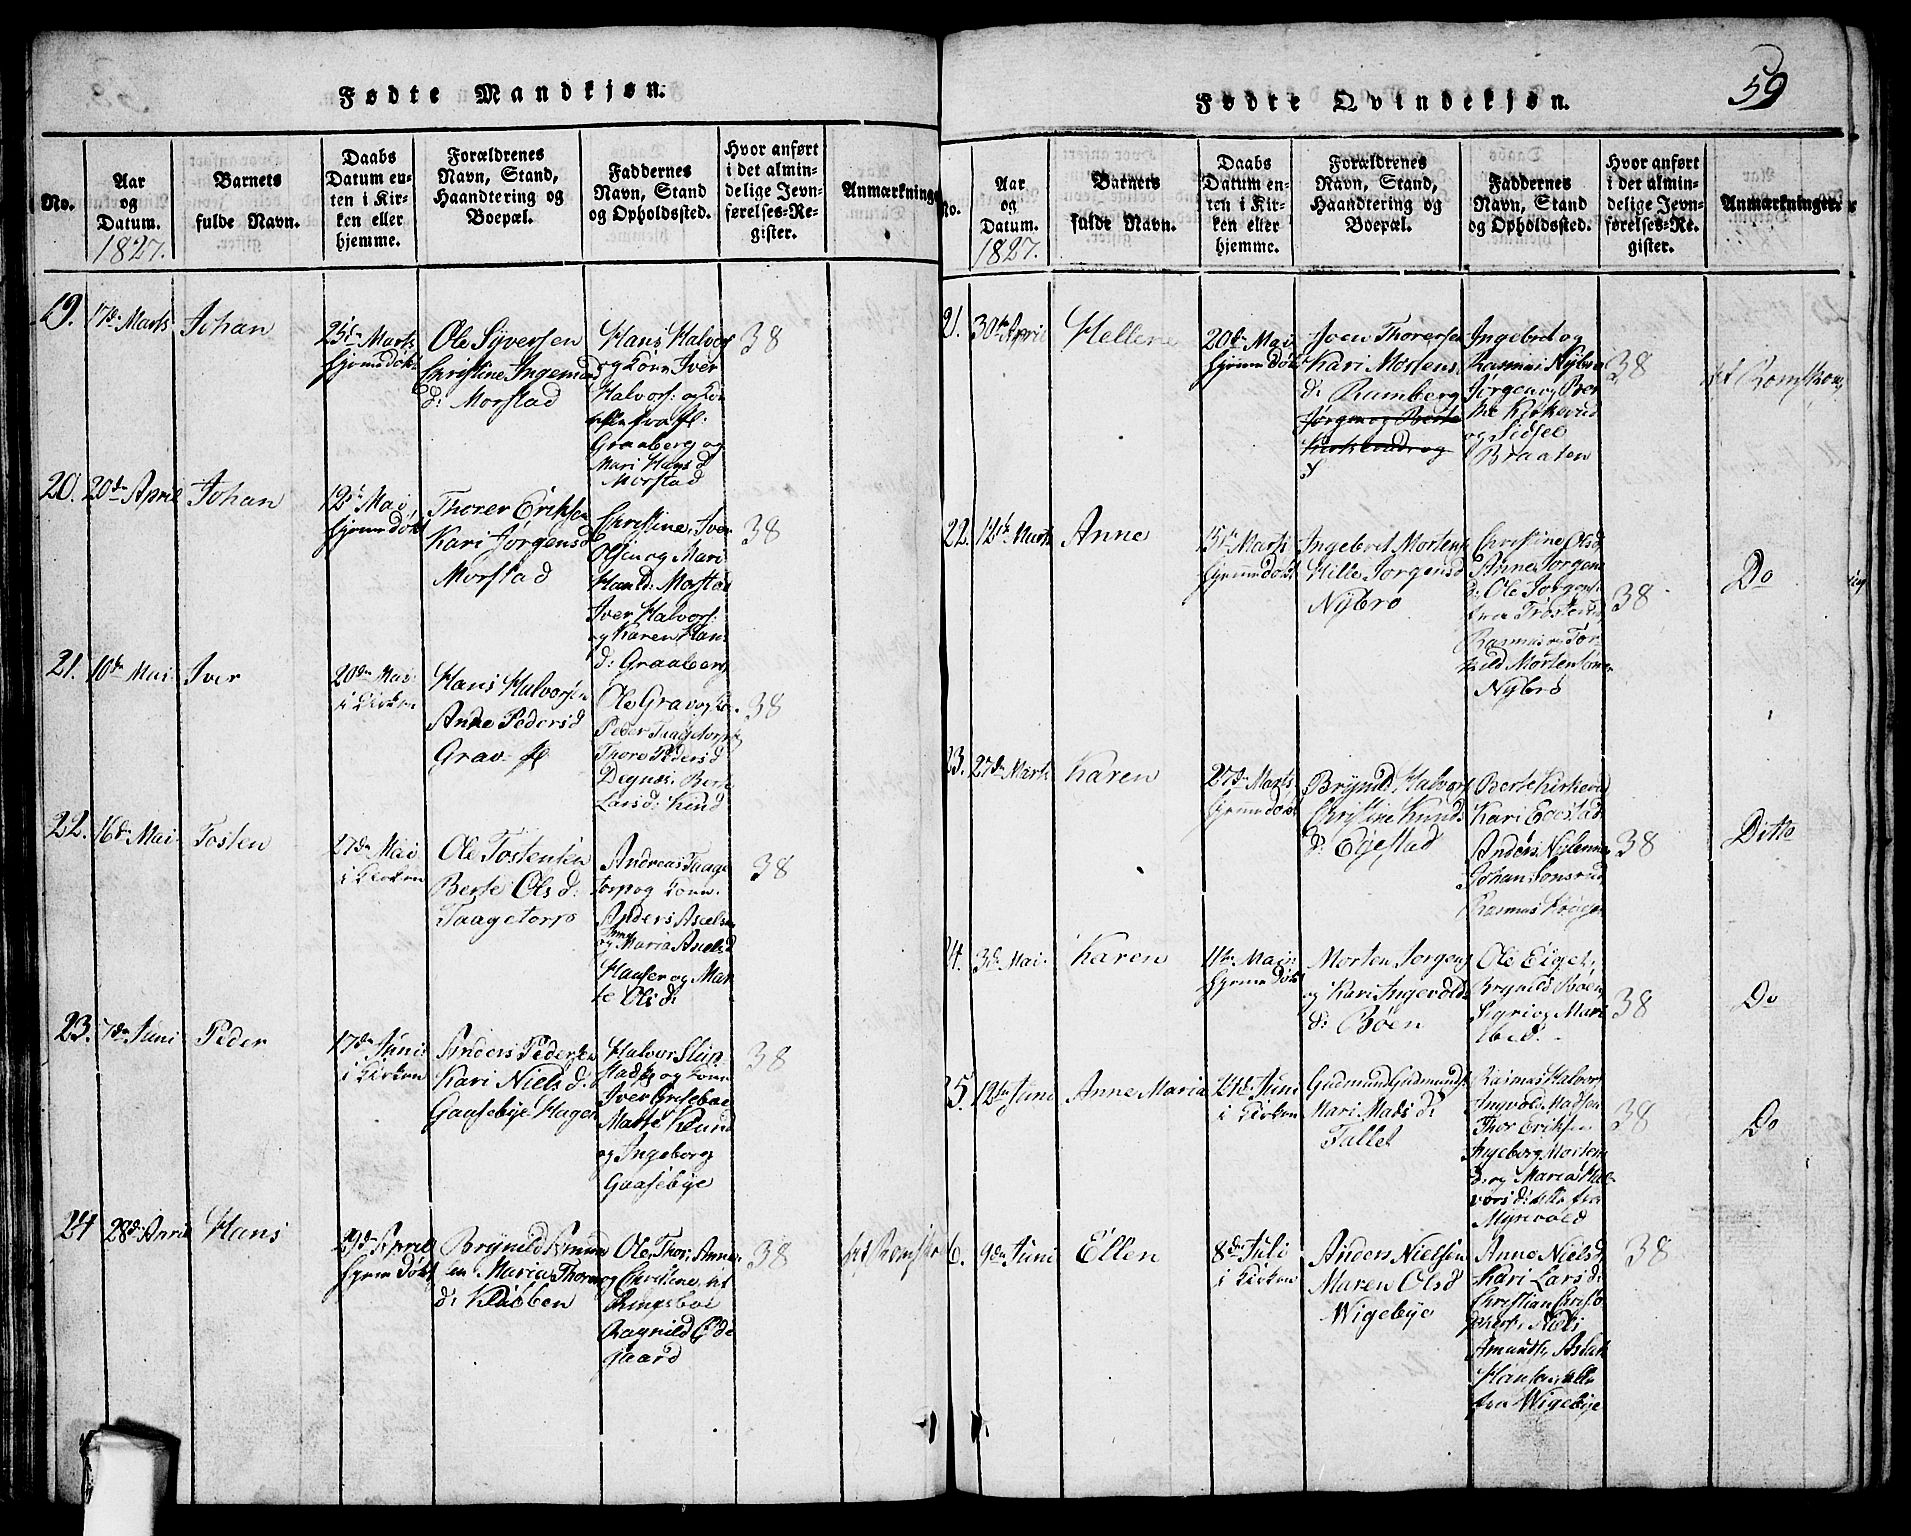 Fødte Mandkjøn.
No.
Aar
og
Datum.
1827.
Barnets
fulde Navn.
Daabs
Datum en-
ten i Kir-
ken eller
hjemme.
Forældrenes
Navn, Stand,
Haandtering og
Boepæl.
Faddernes
Navn, Stand
og Opholdssted.
Hvor anført
i det almin-
delige Jevn-
førelses-Re-
gister.
Anmærkninge
19.
17de Marts
Johan
25de Marts
hjemmedøbt
Ole Syversen
Christine Ingemar
d: Morstad
Hans Halvors
og Kone Iver
Halvors: og Kone
Graaberg og
Mari Hans d
Morstad
38
20.
20de April
Johan
12te Mai,
hjemmedøbt
Thorer Eriksen
Kari Jørgensd
Morstad
Christine, Iver
Olsen og Mari
Hansd: Morstad
Iver Halvors:
og Karen Han
d: Graaberg
38
21.
10de Mai
Iver
20de Mai
i Kirken
Hans Halvorsen
Anne Pedersd
Grav fl
Ole Grav og Ko.
Peder Taagetorp
Thore Pedersd
Degnæs: Berte
Larsd: Kind
38
22.
16de Mai
Tosten
27de Mai
i Kirken
Ole Tostensen
Berte Ols d:
Taagetorp
Andreas Taage
torp og Kone
Anders Axelsen
og Maria Axelsd
og Mar
te Ols d:
38
23.
7de Juni
Peder
17de Juni
i Kirken
Anders Pedersen
Kari Niels d:
Gaasebye Hagen
Halvor Slup
stad og Kone
Iver Gresboe
Marte Klund
og Ingeborg
Gaasebye
38
24
28de April
Hans
29de April
hjemmedøbt
Brynild Amun
en Maria Thorn
d: Klobben
Ole, Thor, Anne
og Christine
Ringsboe
Ragnild Øde
gaard
38
Fødte Qvindekjøn.
59
No.
Aar
og
Datum.
1827.
Barnets
fulde Navn.
Daabs
Datum en-
ten i Kir-
ken eller
hjemme.
Forældrenes
Navn, Stand,
Haandtering og
Boepæl.
Faddernes
Navn, Stand
og Opholdssted.
Hvor anført
i det almin-
delige Jevn-
førelses-Re-
gister.
Anmærkninger.
21.
30te April
Hellene
20de Mai
hjemmedøbt
Joen Thorersen
Kari Mortens
d: Ramberg
Jørgen og Berte
Kirkerud og
Ingebret og
Rasmus Nybroe
Jørgen og Ber
the Kirkerud
og Sidsel
Braaten
38
22.
12te Marts
Anne
Marts
hjemmedøbt
Ingebret Mortens
Hille Jorgensd
Nybro
Christine Olsd
Anne Jorgens
d: Ole Jorgens:
fra Trosterud,
Rasmus Tor
kild Mortensøn
Nybro
38
Do
23.
27de Marts
Karen
27de Marts
hjemmedøbt
Brynild Halvors
Christine Knuds
d: Eigestad
Berte Kirkerud
Kari Egestad
Anders Nylenne
Johan Jonsrud
Rasmus
38
Ditto
24.
3de Mai
Karen
Mai
hjemmedøbt
Morten Jorgens
og Kari Ingevolds
d: Böen
Ole Eiget,
Brynild Boen
Sigri og Mari
ibid.
38
Do
25.
12te Juni
Anne Maria
24de Juni
i Kirken
Gudmund Gudmunds
Mari Mads d:
Tallet
Rasmus Halvors
Ingvold Madsen
Thor Eriksen
Ingeborg Mortens
d. og Maria Hal
vorsd: alle fra
Myrevold
38
Do
6.
9de Juni
Ellen
8de Juli
i Kirken
Anders Nielsen
Maren Olsd
Wigebye
Anne Nielsd
Kari Larsd:
Christian Christo
phers: Niels
Amunds, Aslak
Hansen alle
fra Wigebye
38